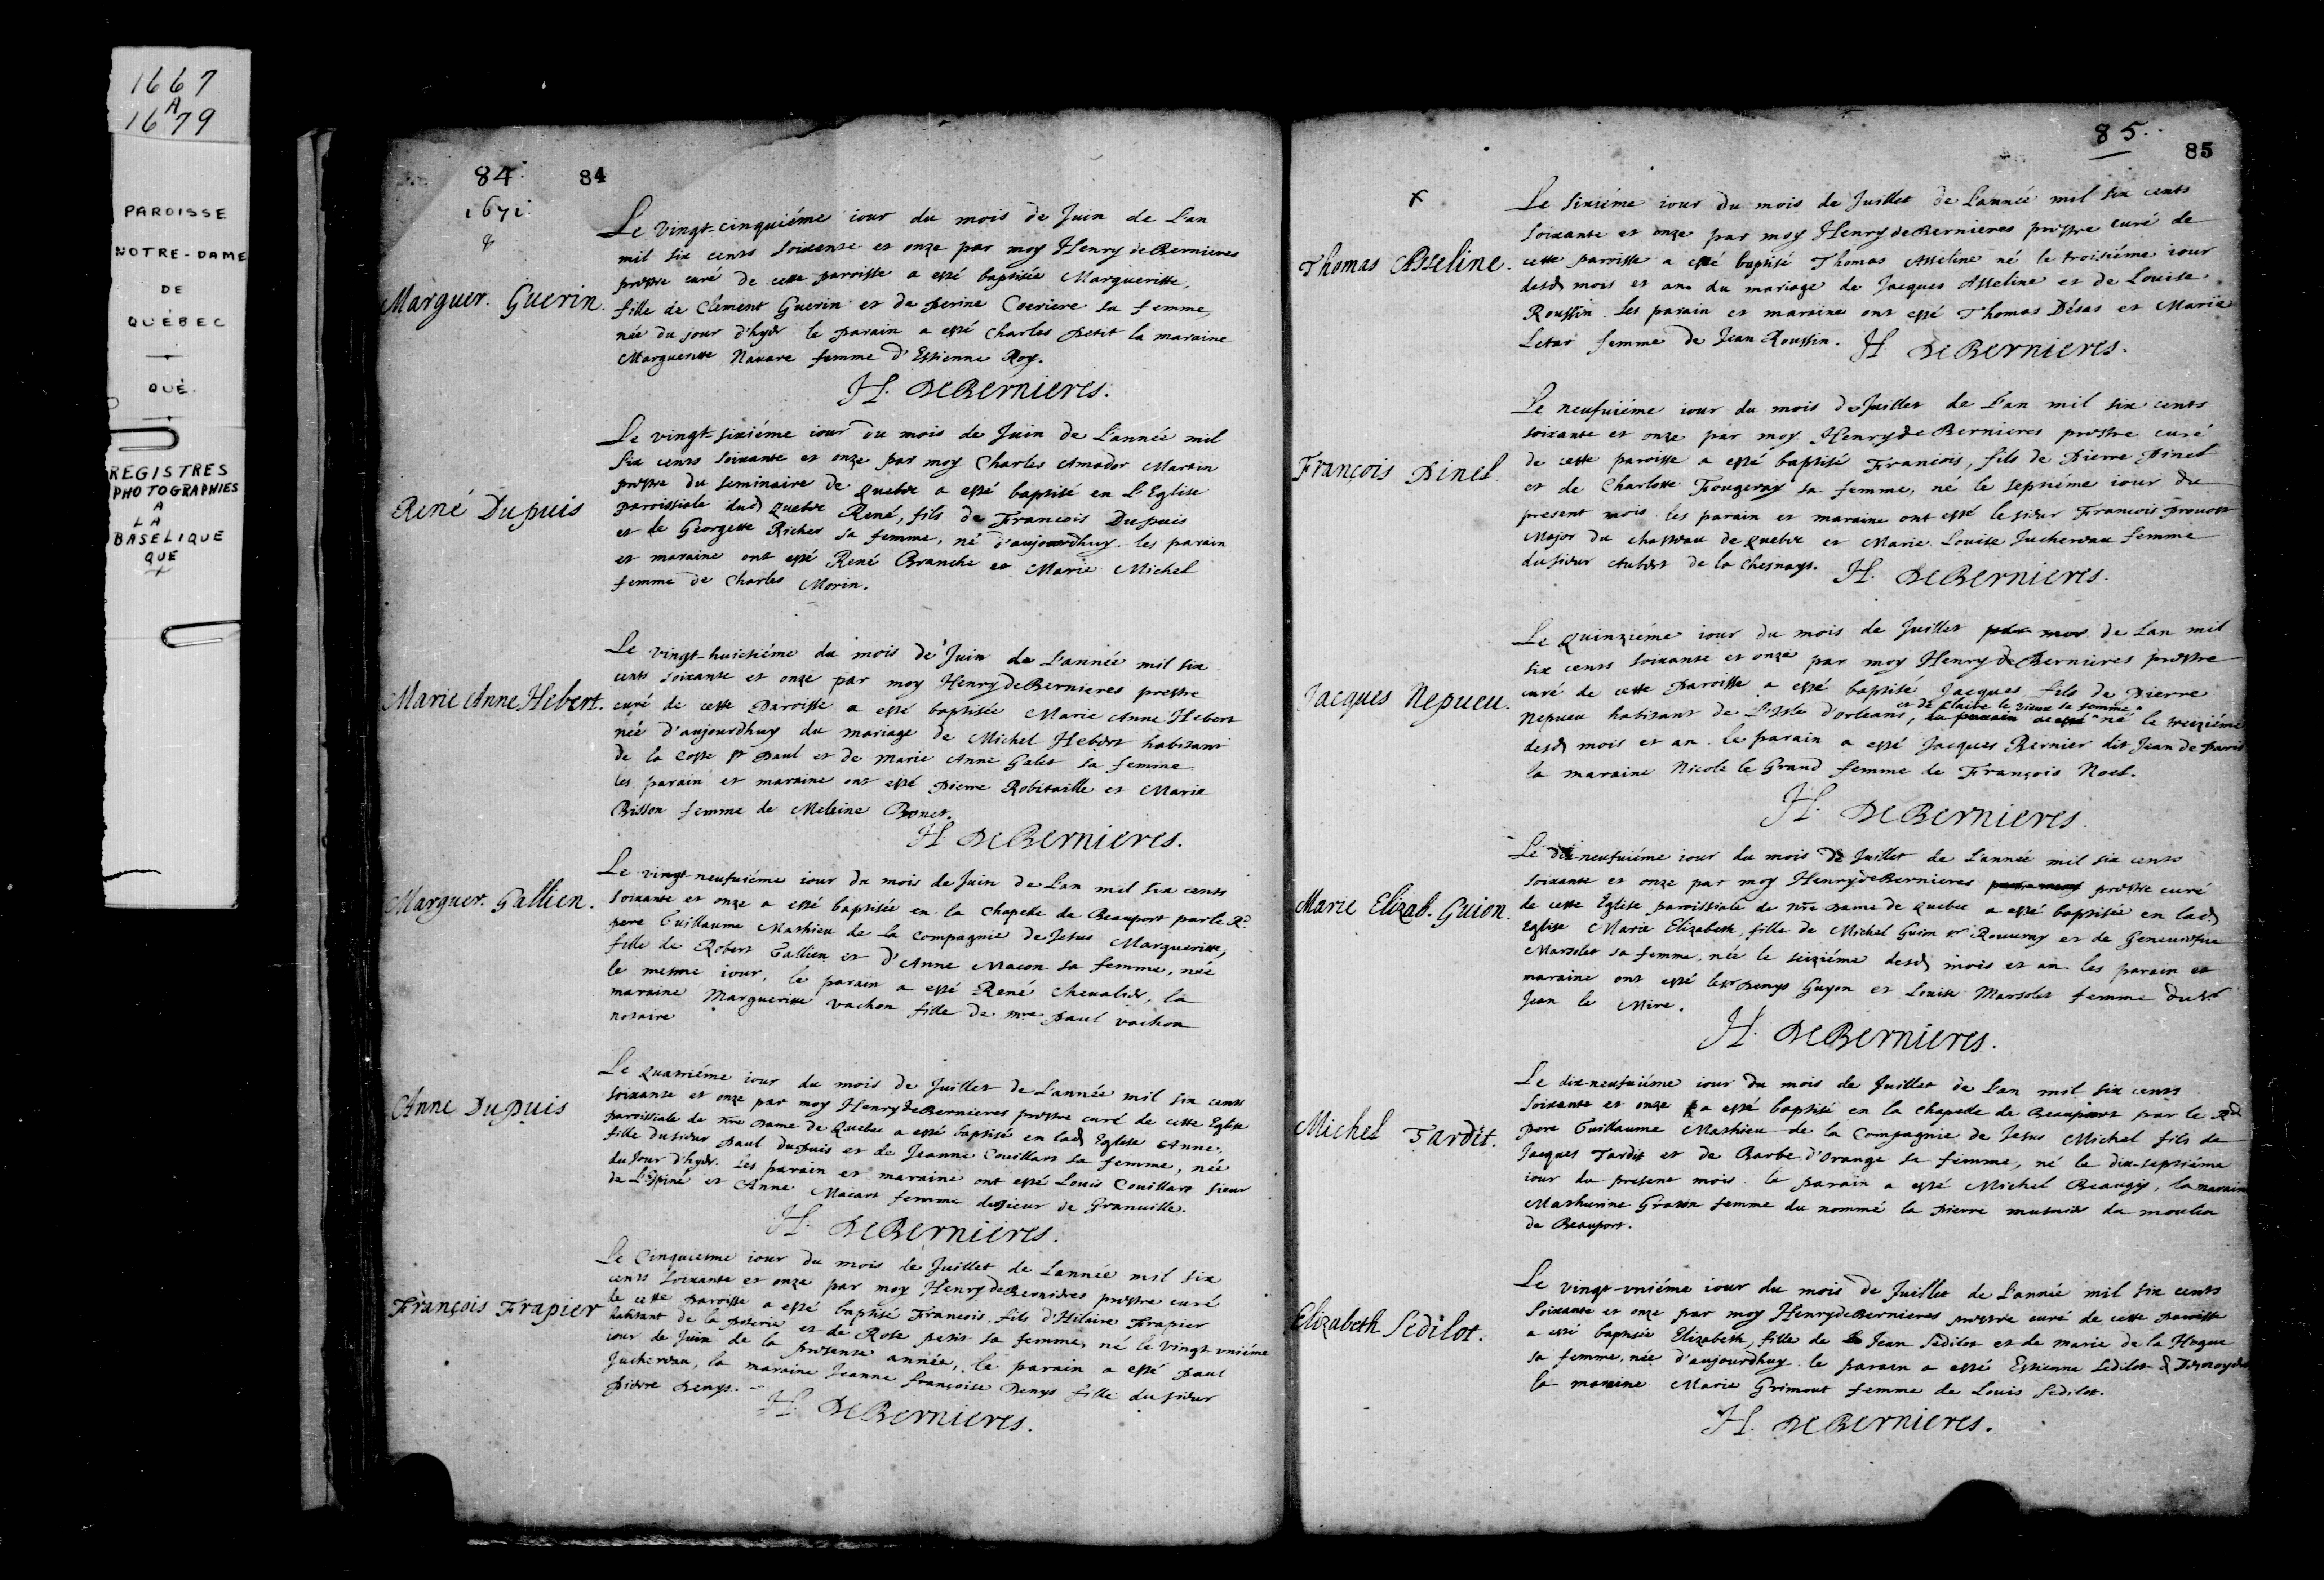 1667
A
1679
PAROISSE
NOTRE-DAME
DE
QUÉBEC
QUÉ.
REGISTRES
PHOTOGRAPHIES
A
LA
BASELIQUE
QUE
84. 84
1671.
Marguer. Guerin.
Le vingt-cinquiéme iour du mois de Juin de L'an
mil six cents soixante et onze par moy Henry de Bernieres
prestre curé de cette paroisse a esté baptisée Margueritte,
fille de Clement Guerin et de Perine Coeriere sa femme,
née du jour d'hyer le parain a esté Charles Petit la maraine
Margueritte Navare femme d'Estienne Roy.
H. DeBernieres.
René Dupuis
Le vingt-sixiéme iour du mois de Juin de L'année mil
six cents soixante et onze par moy Charles Amador Martin
prestre du seminaire de Quebec a esté baptisé en L'Eglise
paroissiale dud Quebec René, fils de Francois Dupuis
et de Georgette Richer sa femme, né d'aujourdhuy. les parain
et maraine ont esté René Branche et Marie Michel
femme de Charles Morin.
Marie Anne Hebert.
Le vingt-huictiéme du mois de Juin de L'année mil six
cents soixante et onze par moy Henry deBernieres prestre
curé de cette Paroisse a esté baptisée Marie Anne Hebert
née d'aujourdhuy du mariage de Michel Hebert habitant
de la Coste St Paul et de Marie Anne Galet sa femme
les parain et maraine ont esté Pierre Robitaille et Marie
Bisson femme de Meleine Bonet.
H. DeBernieres.
Marguer. Gallien.
Le vingt-neufuiéme iour du mois de Juin de L'an mil six cents
soixante et onze a esté baptisée en la Chapelle de Beauport par le Rd
pere Guillaume Mathieu de La Compagnie de Jesus Margueritte,
fille de Robert Gallien et d'Anne Macon sa femme, née
le mesme iour, le parain a esté René Chevalier, la
maraine Margueritte Vachon fille de mre Paul vachon
notaire
Anne Dupuis
Le quatriéme iour du mois de Juillet de L'année mil six cents
soixante et onze par moy Henry deBernieres prestre curé de cette Eglise
paroissiale de nre Dame de Quebec a esté baptisé en lad Eglise Anne,
fille du sieur Paul dupuis et de Jeanne Couillart sa femme, née
du Jour d'hyer. Les parain et maraine ont esté Louis Couillart sieur
de L'Espiné et Anne Macart femme du sieur de Granville.
H. DeBernieres.
François Frapier
Le Cinquiesme iour du mois de Juillet de Lannée mil six
cents soixante et onze par moy Henry deBernieres prestre curé
de cette Paroisse a esté baptisé Francois, fils d'Hilaire Frapier
habitant de la poterie et de Rose petit sa femme, né le vingt-vniéme
iour de Juin de la presente année, le parain a esté Paul
Juchereau, la maraine Jeanne françoise Denys fille du sieur
Pierre Denys.
H. DeBernieres.
85. 85
x
Thomas Asseline.
Le sixiéme iour du mois de Juillet de L'année mil six cents
soixante et onze par moy Henry deBernieres prestre curé de
cette paroisse a esté baptisé Thomas Asseline né le troisiéme iour
desd mois et an. du mariage de Jacques Asseline et de Louise
Roussin. Les parain et maraine ont esté Thomas Désas et Marie
Letar femme de Jean Roussin. H. DeBernieres.
François Pinel.
Le neufuiéme iour du mois de Juillet de L'an mil six cents
soixante et onze par moy Henry de Bernieres prestre curé
de cette paroisse a esté baptisé Francois, fils de Pierre Pinel
et de Charlotte Fougeray sa femme, né le septiéme iour du
present mois les parain et maraine ont esté le sieur Francois Provost
Major du chasteau de Quebec et Marie Louise Juchereau femme
du sieur Aubert de la Chesnays. H. DeBernieres.
Jacques Nepueu.
Le Quinziéme iour du mois de Juillet par moy de L'an mil
six cents soixante et onze par moy Henry de Bernieres prestre
curé de cette Paroisse a esté baptisé Jacques fils de Pierre
et de Claire le vieux sa femme
Nepueu habitant de L'isle d'orleans, né le treiziéme
desd mois et an. le parain a esté Jacques Bernier dit Jean de Paris
la maraine Nicole le Grand femme de François Noel.
H. DeBernieres.
Marie Elizab. Guion.
Le dix-neufuiéme iour du mois de Juillet de L'année mil six cents
soixante et onze par moy Henry deBernieres prestre curé
de cette Eglise paroissiale de nre Dame de Quebec a esté baptisée en lad
Eglise Marie Elizabeth, fille de Michel Guion sr Rouuray et de Geneuiefue
Marsolet sa femme, née le seiziéme desd mois et an les parain et
maraine ont esté le sr Denys Guyon et Louise Marsolet femme du sr
Jean le Mire.
H. DeBernieres.
Michel Tardit.
Le dix-neufuiéme iour du mois de Juillet de L'an mil six cents
soixante et onze a esté baptisé en la Chapelle de Beauport par le Rd
pere Guillaume Mathieu de la Compagnie de Jesus Michel fils de
Jacques Tardit et de Barbe d'Orange sa femme, né le dix-septiéme
iour du present mois le parain a esté Michel Beaugis, la maraine
Mathurine Graton femme du nommé la Pierre musnier du moulin
de Beauport.
Elizabeth Sedilot.
Le vingt-vniéme iour du mois de Juillet de L'année mil six cents
soixante et onze par moy Henry deBernieres prestre curé de cette Paroisse
a esté baptisée Elizabeth, fille de Jean Sedilot et de marie de la Hogue
sa femme, née d'aujourdhuy. le parain a esté Estienne Sedilot d Desnoyers
la maraine Marie Grimout femme de Louis Sedilot.
H. DeBernieres.